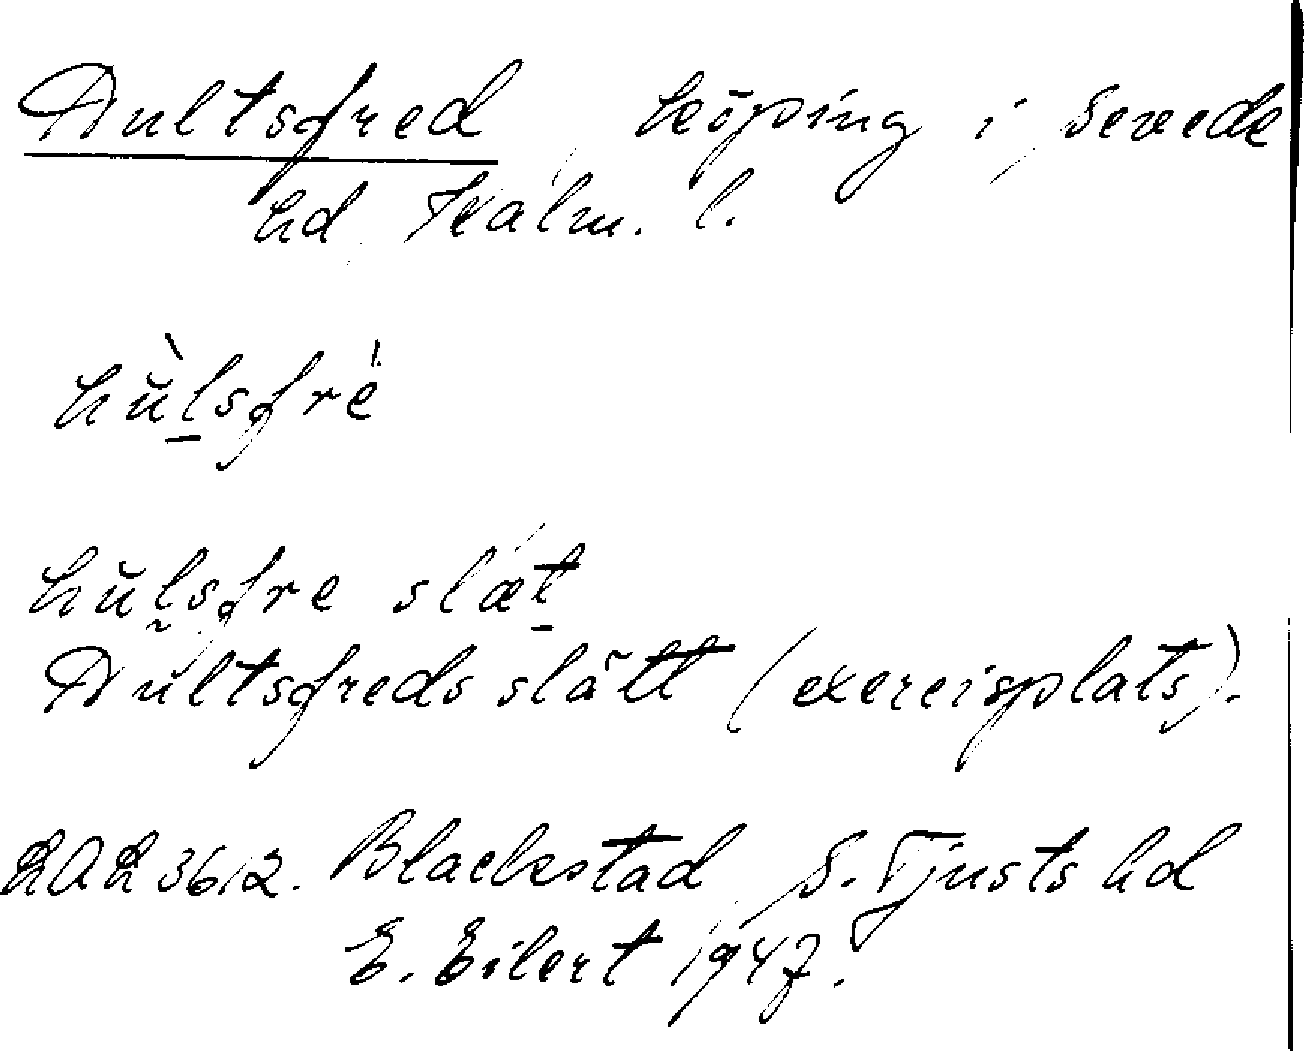 Hultsfred köping i Sevede
hd Kalm. l.
hùlsfrè
hŭlsfre slæt
Hultsfreds slätt (exercisplats).
Blackstad S. Tjusts hd
E. Eilert 1947.